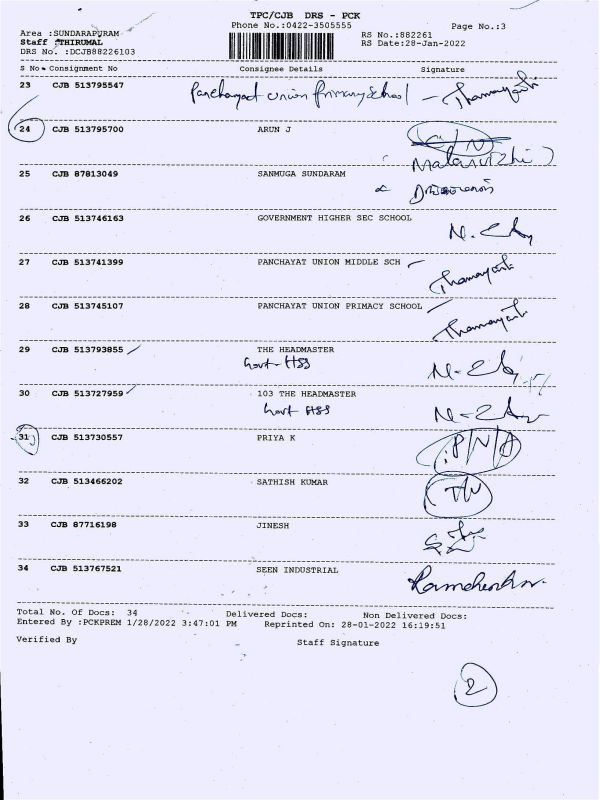 TPC/CJB DRS - PCK
Phone No.:0422-3505555
Page No.:3
Area :SUNDARAPURAM
RS No.:882261
Staff :THIRUMAL
RS Date:28-Jan-2022
DRS No. :DCJB88226103
S No Consignment No Consignee Details Signature
23 CJB 513795547 Panchayat Union Primary School -
24 CJB 513795700 ARUN J
25 CJB 87813049 SANMUGA SUNDARAM
26 CJB 513746163 GOVERNMENT HIGHER SEC SCHOOL
27 CJB 513741399 PANCHAYAT UNION MIDDLE SCH
28 CJB 513745107 PANCHAYAT UNION PRIMACY SCHOOL
29 CJB 513793855 THE HEADMASTER
Govt - HSS
30 CJB 513727959 103 THE HEADMASTER
Govt HSS
31 CJB 513730557 PRIYA K
32 CJB 513466202 SATHISH KUMAR
33 CJB 87716198 JINESH
34 CJB 513767521 SEEN INDUSTRIAL
Total No. Of Docs: 34 Delivered Docs: Non Delivered Docs:
Entered By :PCKPREM 1/28/2022 3:47:01 PM Reprinted On: 28-01-2022 16:19:51
Verified By Staff Signature
2